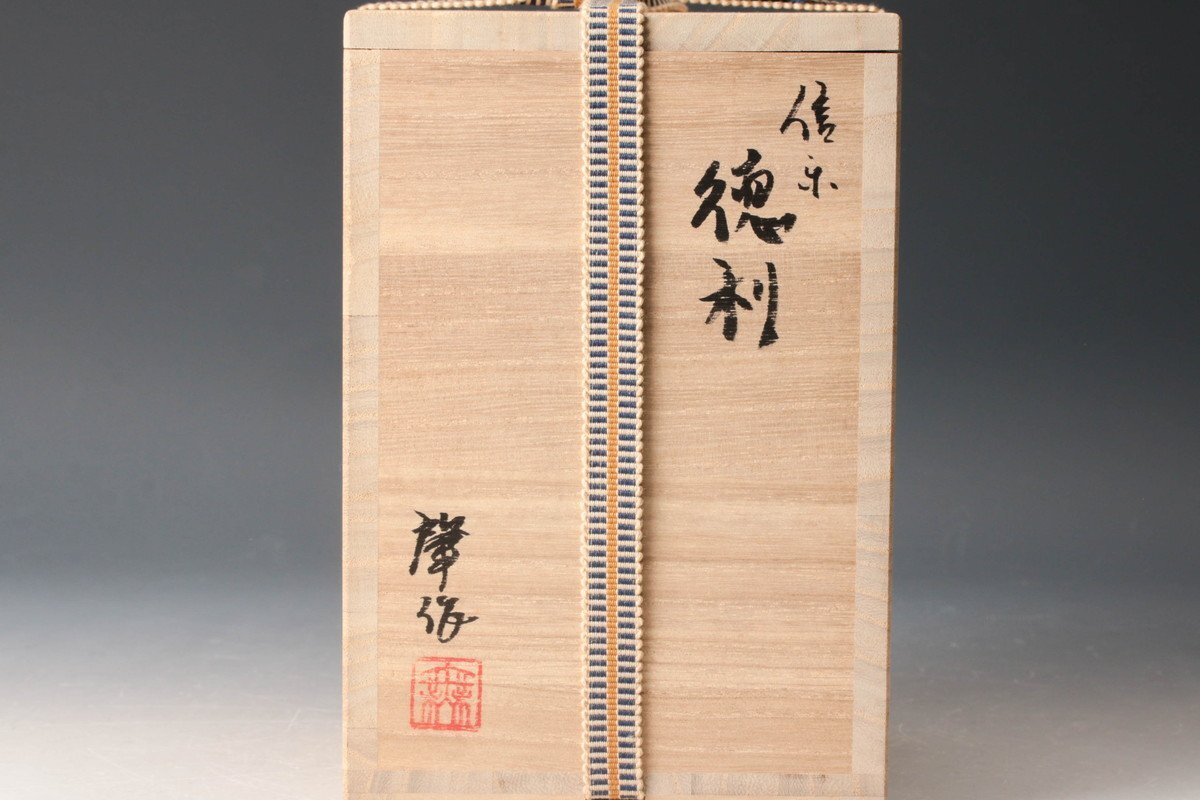 信楽
徳利
肇作